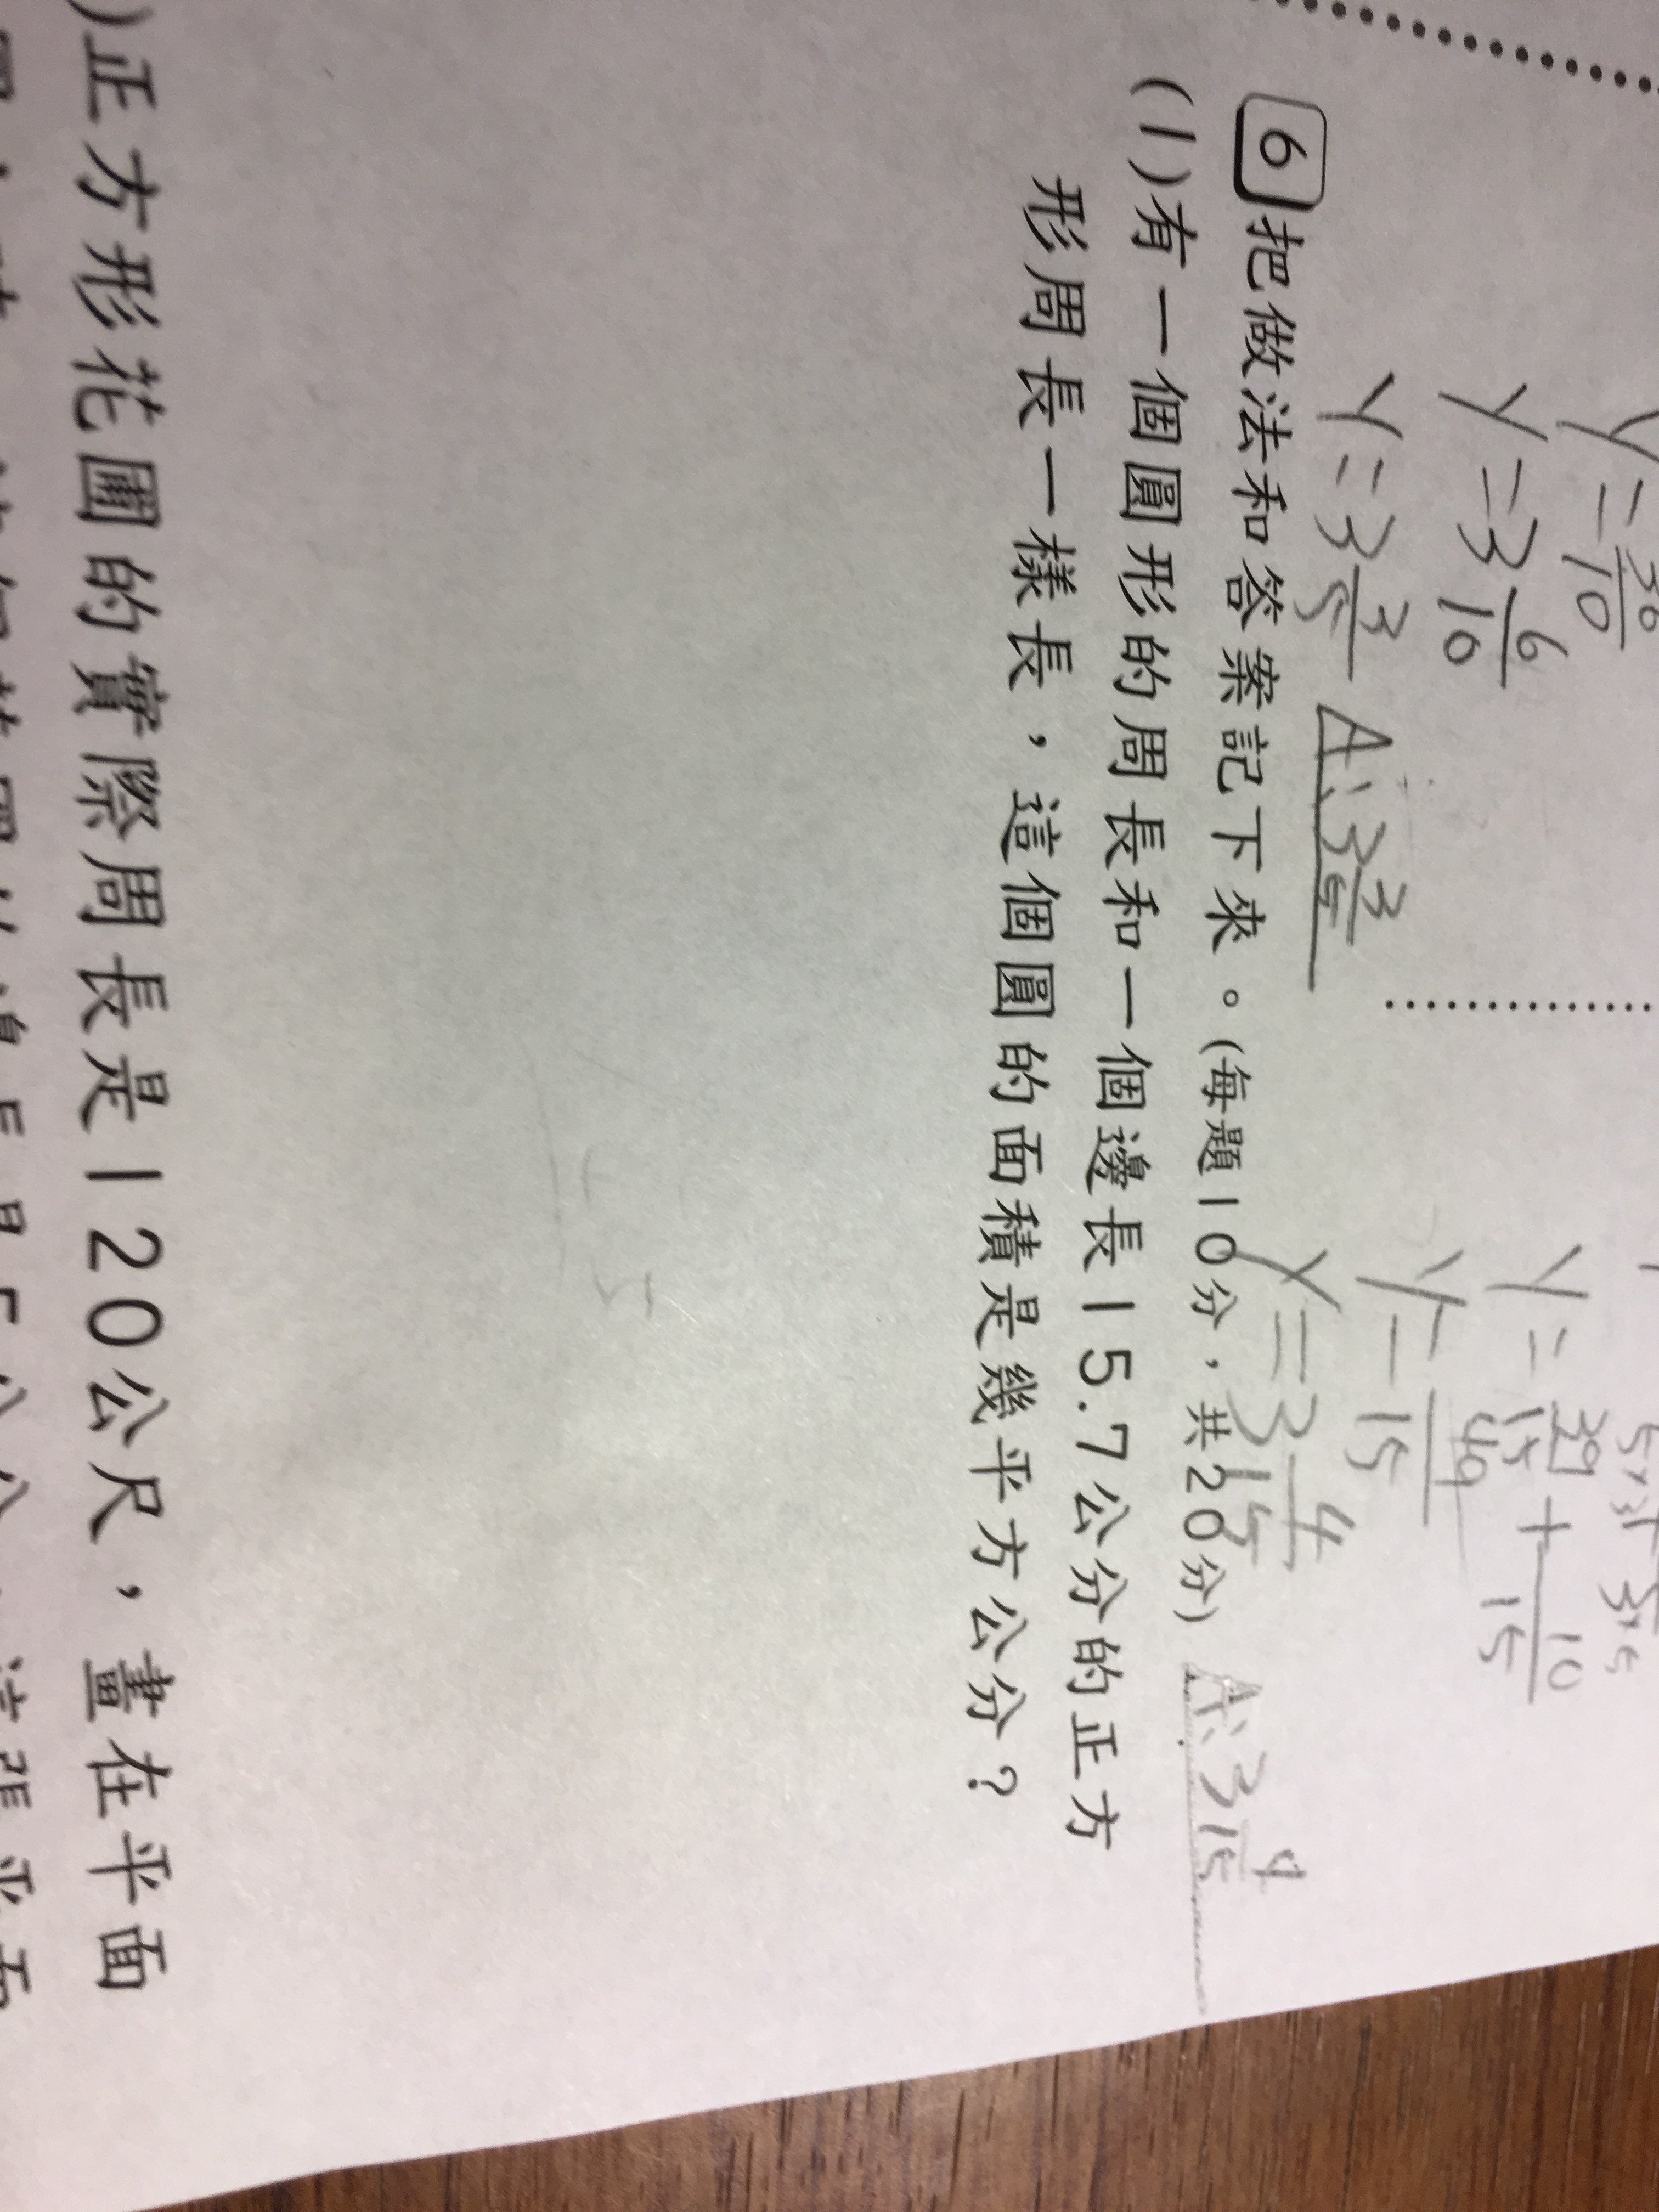 y=36/10
y=3 6/10
y=3 3/5 A:3 3/5
y=39/15+10/15
y=49/15
y=3 4/15
A:3 4/15
6 把做法和答案記下來。(每題10分,共20分)
(1)有一個圓形的周長和一個邊長15.7公分的正方
形周長一樣長,這個圓的面積是幾平方公分?
)正方形花圃的實際周長是120公尺,畫在平面